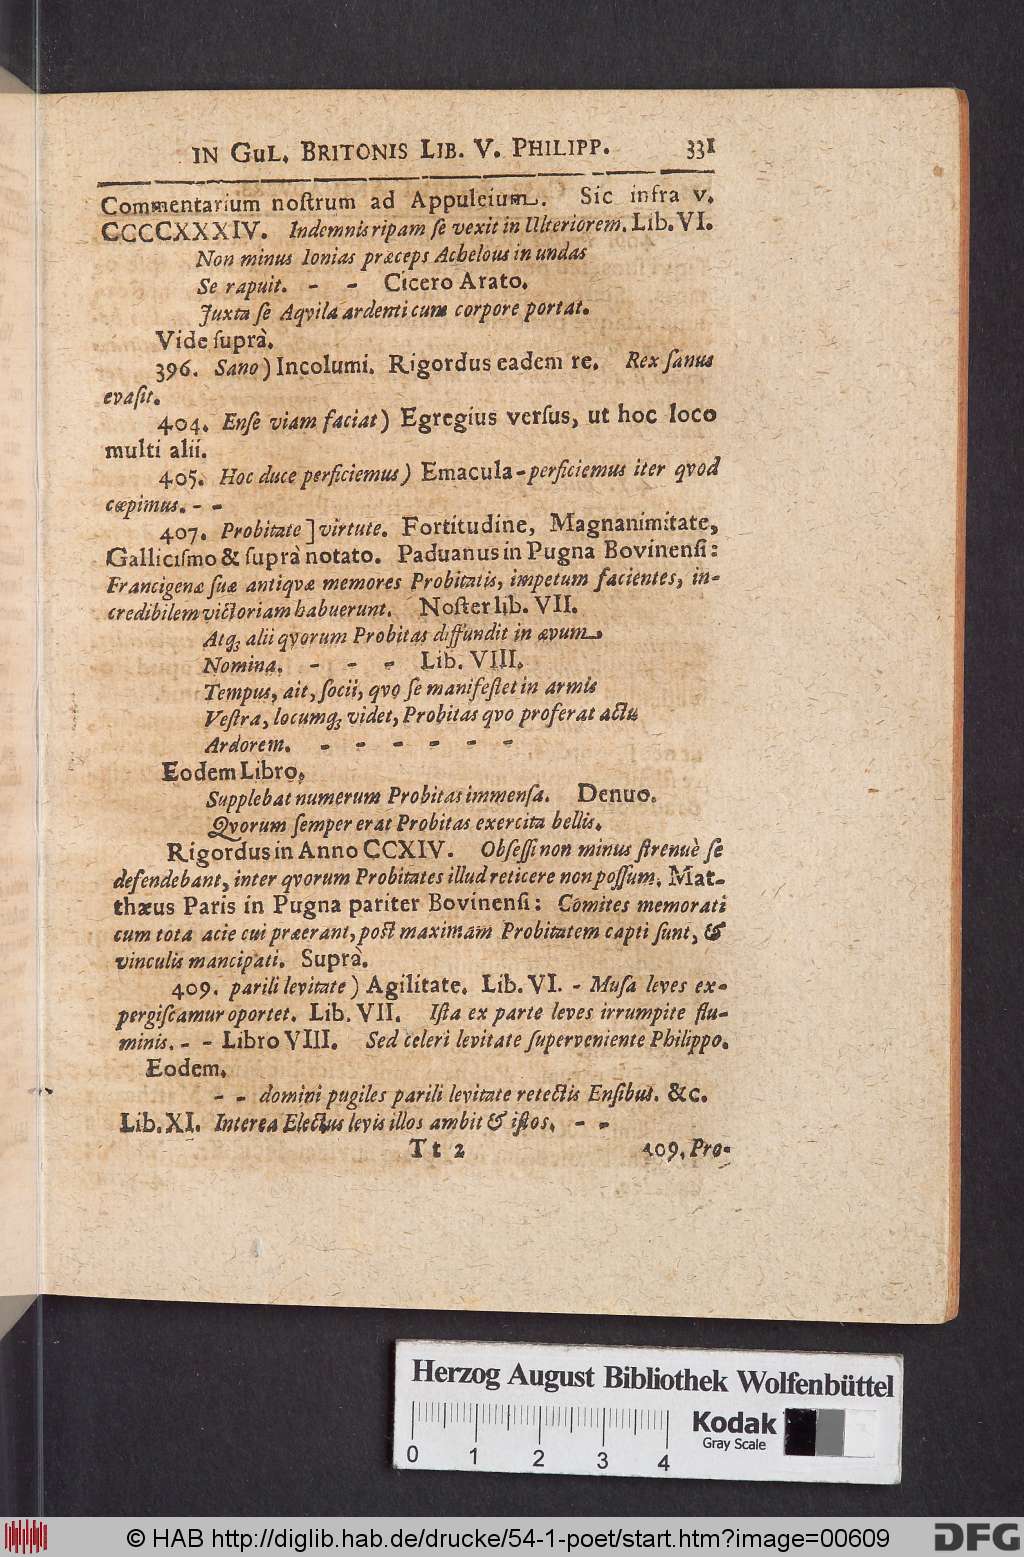 IN GUL. BRITONIS LIB. V. PHILIPP. 331
Commentarium noſtrum ad Appuleium. Sic infra v.
CCCCXXXIV. Indemnis ripam ſe vexit in Ulteriorem. Lib. VI.
Non minus Ionias præceps Achelous in undas
Se rapuit. - - Cicero Arato.
Juxta ſe Aqvila ardenti cum corpore portat.
Vide ſuprà.
396. Sano) Incolumi. Rigordus eadem re. Rex ſanus
evaſit.
404. Enſe viam faciat) Egregius verſus, ut hoc loco
multi alii.
405. Hoc duce perficiemus) Emacula-perficiemus iter qvod
cœpimus. - -
407. Probitate] virtute. Fortitudine, Magnanimitate,
Galliciſmo & ſuprà notato. Paduanus in Pugna Bovinenſi:
Francigenæ ſuæ antiqvæ memores Probitatis, impetum facientes, in-
credibilem victoriam habuerunt. Noſter lib. VII.
Atq; alii qvorum Probitas diffundit in ævum
Nomina. - - - Lib. VIII.
Tempus, ait, ſocii, qvo ſe manifeſtet in armis
Veſtra, locumq; videt, Probitas qvo proferat actu
Ardorem. - - - - - -
Eodem Libro.
Supplebat numerum Probitas immenſa. Denuo.
Qvorum ſemper erat Probitas exercita bellis.
Rigordus in Anno CCXIV. Obſeſſi non minus ſtrenuè ſe
defendebant, inter qvorum Probitates illud reticere non poſſum. Mat-
thæus Paris in Pugna pariter Bovinenſi: Comites memorati
cum tota acie cui præerant, poſt maximam Probitatem capti ſunt, &
vinculis mancipati. Suprà.
409. parili levitate) Agilitate. Lib. VI. - Muſa leves ex-
pergiſcamur oportet. Lib. VII. Iſta ex parte leves irrumpite flu-
minis. - - Libro VIII. Sed celeri levitate ſuperveniente Philippo.
Eodem.
- - domini pugiles parili levitate retectis Enſibus. &c.
Lib. XI. Interea Electus levis illos ambit & iſtos. - -
Tt 2 409. Pro-
Herzog August Bibliothek Wolfenbüttel
Kodak
Gray Scale
0 1 2 3 4
© HAB http://diglib.hab.de/drucke/54-1-poet/start.htm?image=00609
DFG